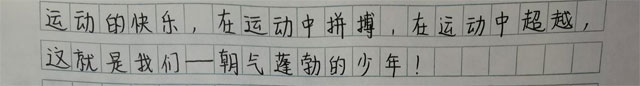 运动的快乐，在运动中拼搏，在运动中超越，
这就是我们—朝气蓬勃的少年！